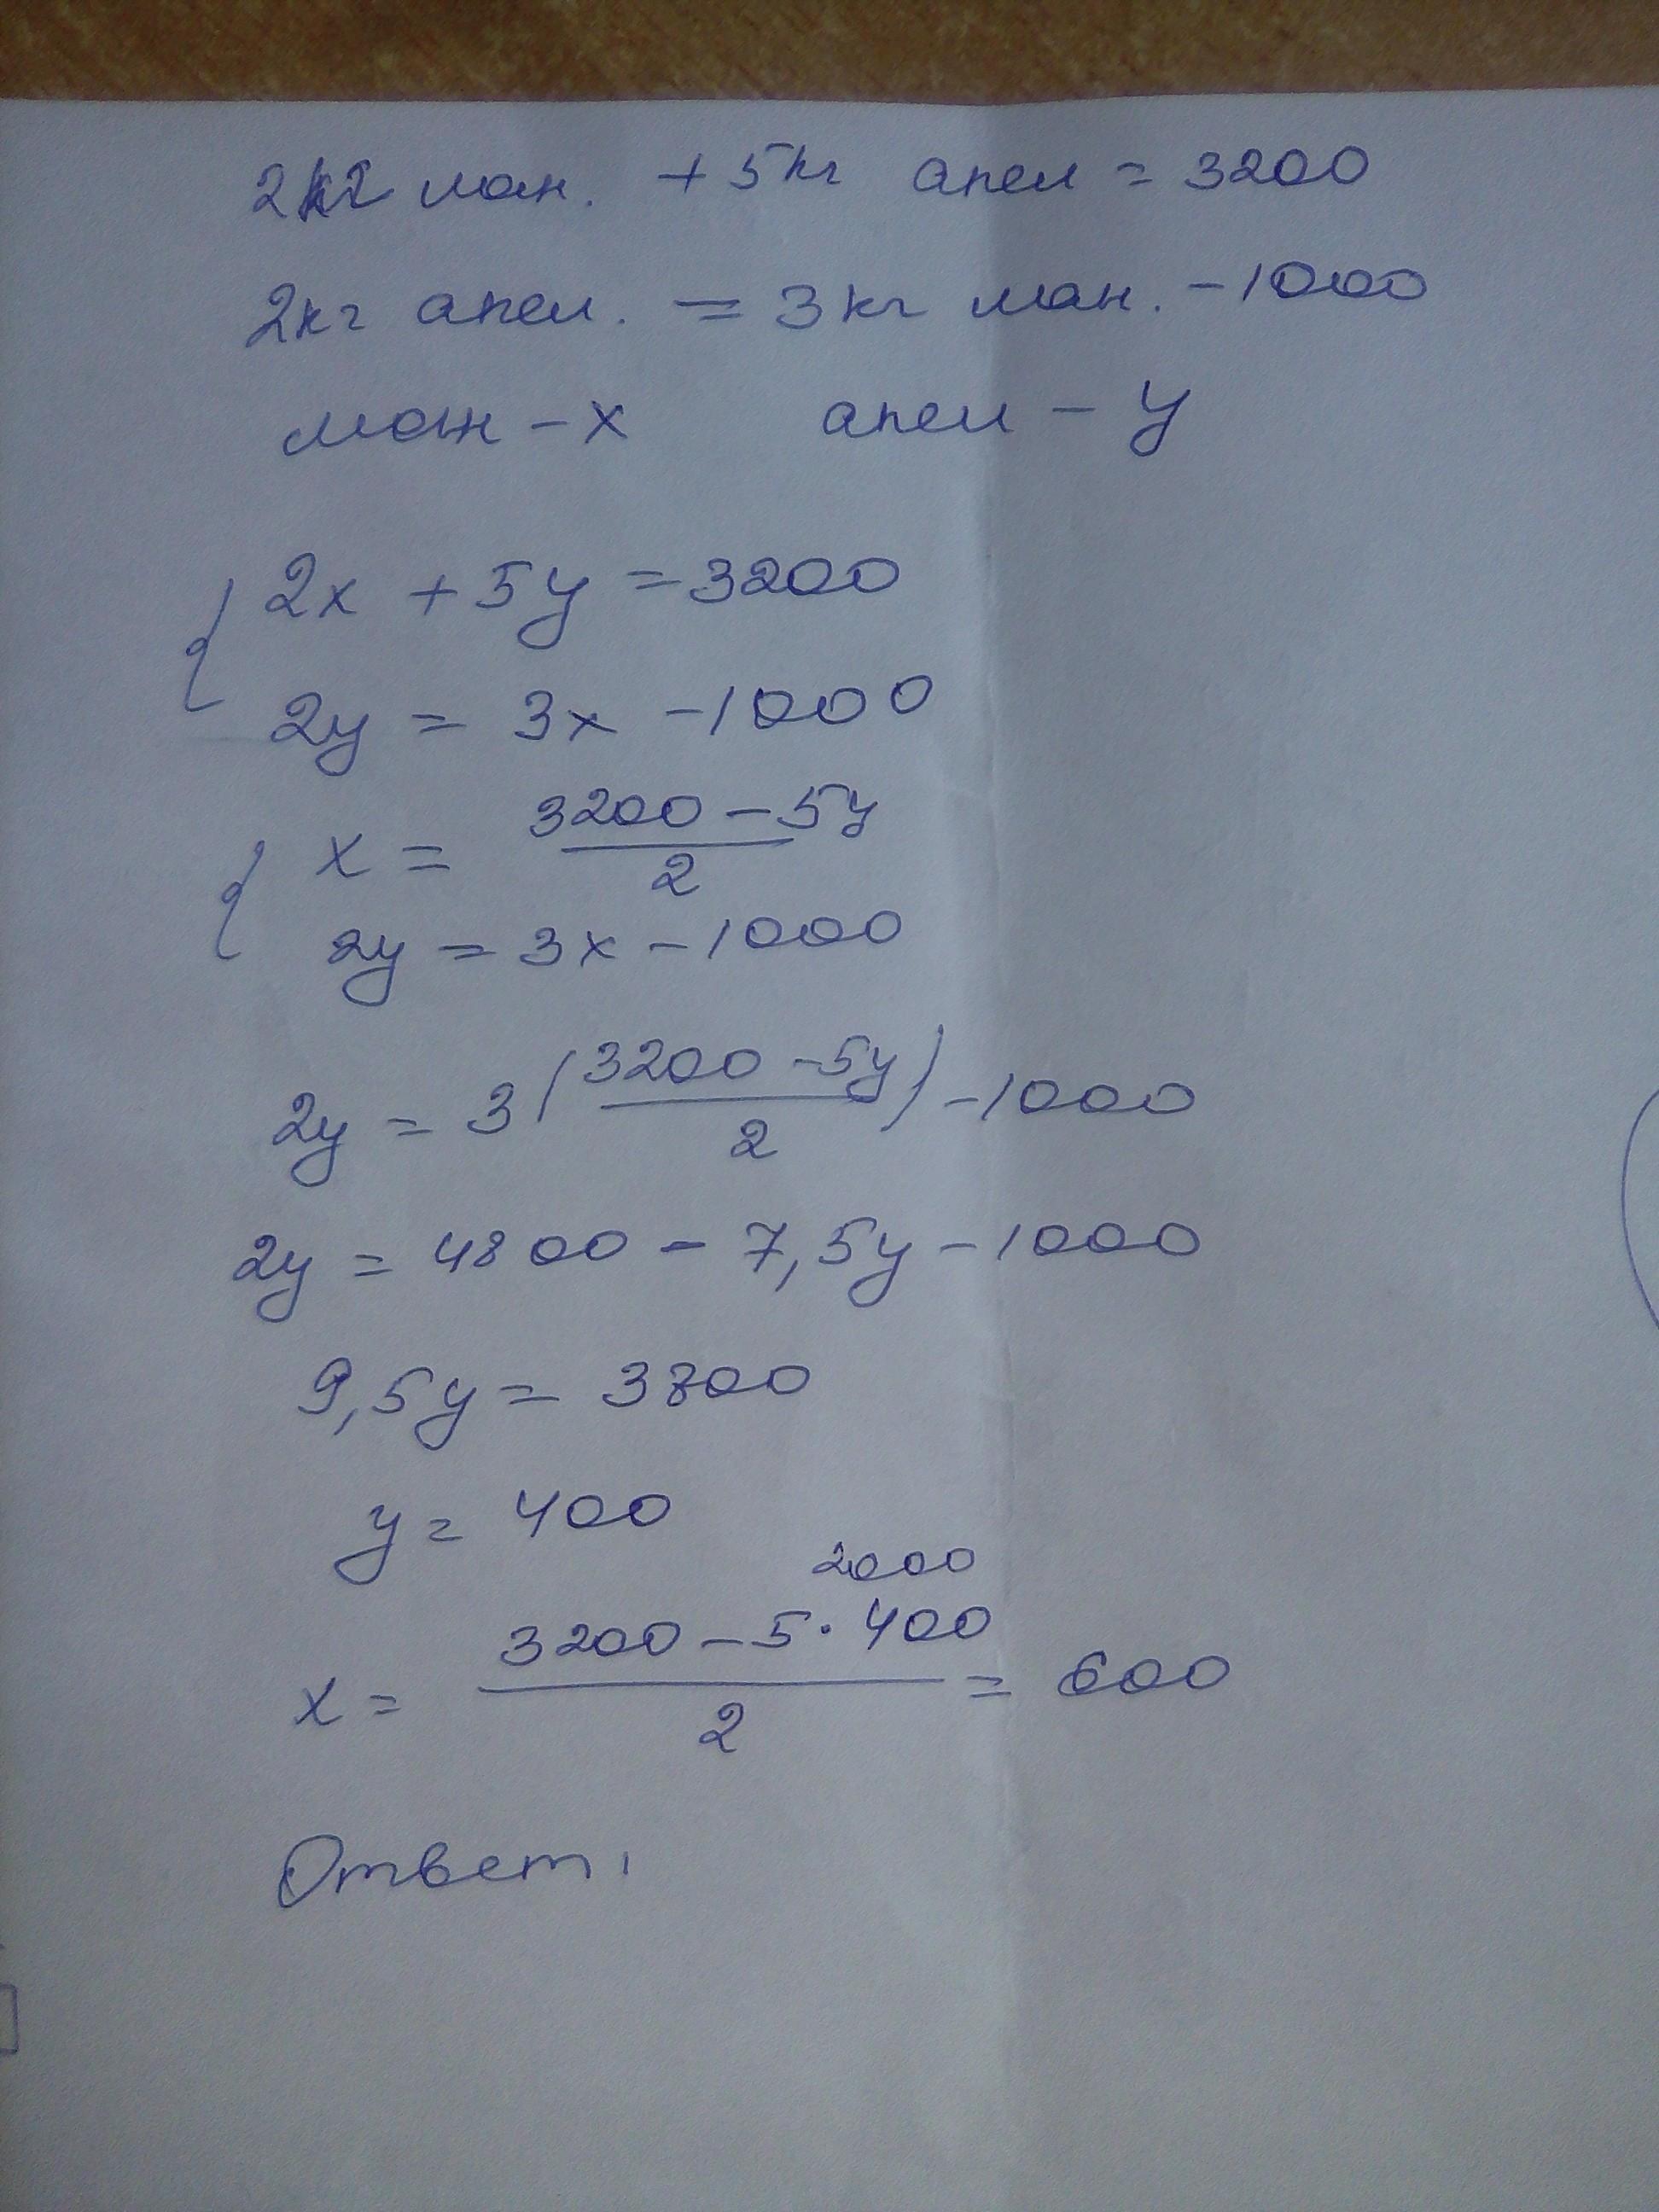 2кг ман. + 5кг апел = 3200
2кг апел. = 3кг ман. - 1000
ман - x апел - y
{ 2x + 5y = 3200
2y = 3x - 1000
{ x = (3200 - 5y)/2
2y = 3x - 1000
2y = 3((3200 - 5y)/2) - 1000
2y = 4800 - 7,5y - 1000
9,5y = 3800
y = 400
2000
x = (3200 - 5·400)/2 = 600
Ответ: